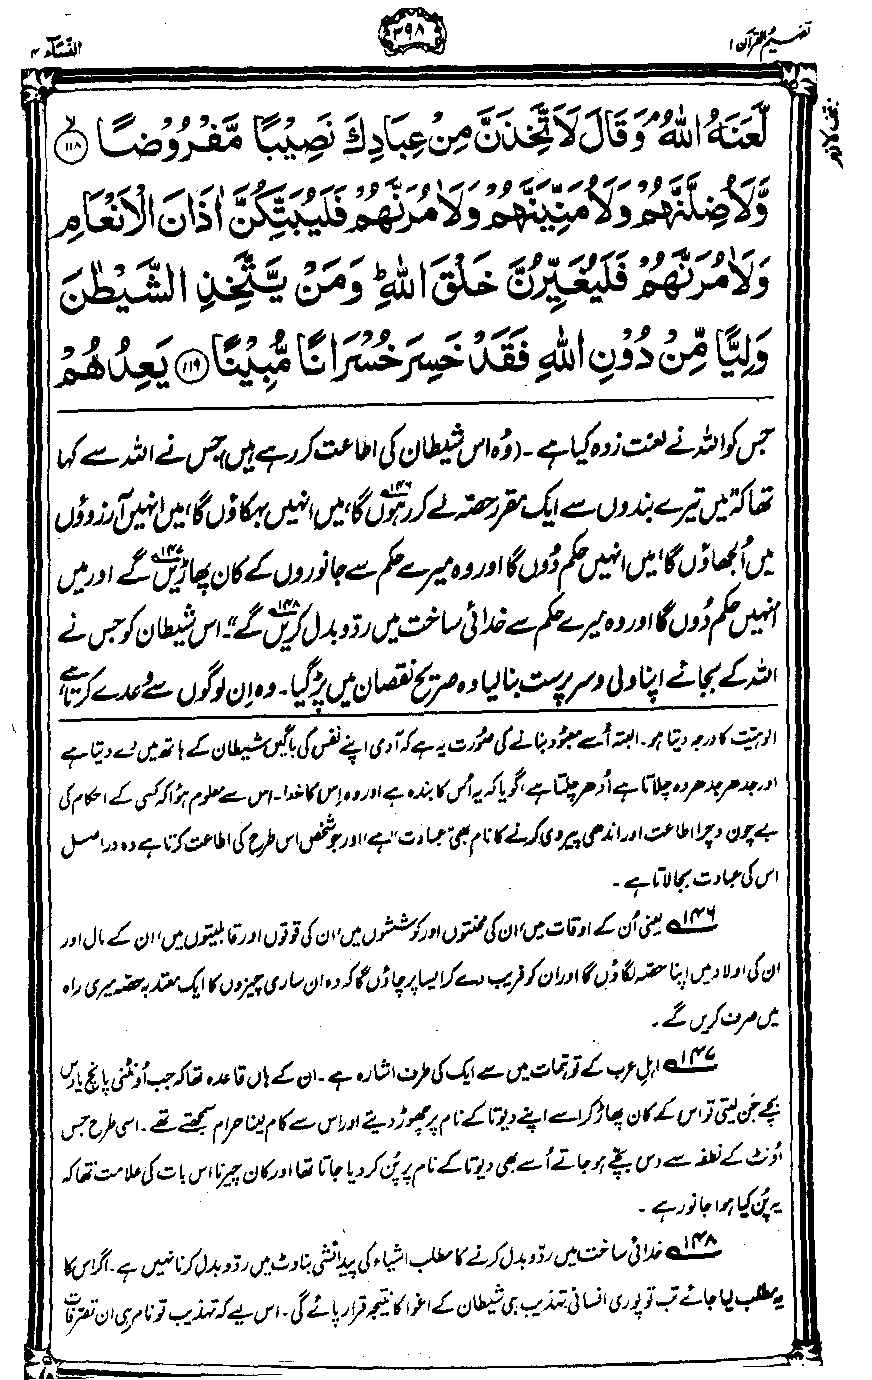 تفہیم القرآن ۱
۳۹۸
النساء ۴
لَّعَنَهُ اللّٰهُ ۘ وَقَالَ لَاَتَّخِذَنَّ مِنْ عِبَادِكَ نَصِيْبًا مَّفْرُوْضًا ۙ﴿۱۱۸﴾
وَّلَاُضِلَّنَّهُمْ وَلَاُمَنِّيَنَّهُمْ وَلَاٰمُرَنَّهُمْ فَلَيُبَتِّكُنَّ اٰذَانَ الْاَنْعَامِ
وَلَاٰمُرَنَّهُمْ فَلَيُغَيِّرُنَّ خَلْقَ اللّٰهِ ؕ وَمَنْ يَّتَّخِذِ الشَّيْطٰنَ
وَلِيًّا مِّنْ دُوْنِ اللّٰهِ فَقَدْ خَسِرَ خُسْرَانًا مُّبِيْنًا ﴿۱۱۹﴾ يَعِدُهُمْ
جس کو اللہ نے لعنت زدہ کیا ہے۔ (وُہ اس شیطان کی اطاعت کر رہے ہیں) جس نے اللہ سے کہا
تھا کہ ”میں تیرے بندوں سے ایک مقرر حصّہ لے کر رہوں گا۱۴۶، میں انہیں بہکاؤں گا، میں انہیں آرزوؤں
میں اُلجھاؤں گا، میں انہیں حکم دُوں گا اور وہ میرے حکم سے جانوروں کے کان پھاڑیں۱۴۷ گے اور میں
انہیں حکم دُوں گا اور وہ میرے حکم سے خدائی ساخت میں ردّ و بدل کریں۱۴۸ گے“۔ اس شیطان کو جس نے
اللہ کے بجائے اپنا ولی و سرپرست بنا لیا وہ صریح نقصان میں پڑ گیا۔ وہ اِن لوگوں سے وعدے کرتا ہے
الوہیّت کا درجہ دیتا ہو۔ البتہ اُسے معبُود بنانے کی صُورت یہ ہے کہ آدمی اپنے نفس کی باگیں شیطان کے ہاتھ میں دے دیتا ہے
اور جدھر جدھر وہ چلاتا ہے اُدھر چلتا ہے، گویا کہ یہ اُس کا بندہ ہے اور وہ اِس کا خدا۔ اس سے معلوم ہؤا کہ کسی کے احکام کی
بے چون و چرا اطاعت اور اندھی پیروی کرنے کا نام بھی ”عبادت“ ہے اور جو شخص اس طرح کی اطاعت کرتا ہے وہ دراصل
اس کی عبادت بجا لاتا ہے۔
۱۴۶ یعنی اُن کے اوقات میں، ان کی محنتوں اور کوششوں میں، ان کی قوتوں اور قابلیتوں میں، ان کے مال اور
ان کی اولاد میں اپنا حصّہ لگاؤں گا اور ان کو فریب دے کر ایسا پرچاؤں گا کہ وہ ان ساری چیزوں کا ایک معتدبہ حصّہ میری راہ
میں صرف کریں گے۔
۱۴۷ اہلِ عرب کے توہّمات میں سے ایک کی طرف اشارہ ہے۔ ان کے ہاں قاعدہ تھا کہ جب اُونٹنی پانچ یا دس
بچّے جَن لیتی تو اس کے کان پھاڑ کر اسے اپنے دیوتا کے نام پر چھوڑ دیتے اور اس سے کام لینا حرام سمجھتے تھے۔ اسی طرح جس
اُونٹ کے نطفہ سے دس بچّے ہو جاتے اُسے بھی دیوتا کے نام پر پُن کر دیا جاتا تھا اور کان چیرنا اس بات کی علامت تھا کہ
یہ پُن کیا ہوا جانور ہے۔
۱۴۸ خدائی ساخت میں ردّ و بدل کرنے کا مطلب اشیاء کی پیدائشی بناوٹ میں ردّ و بدل کرنا نہیں ہے۔ اگر اس کا
یہ مطلب لیا جائے تب تو پوری انسانی تہذیب ہی شیطان کے اغوا کا نتیجہ قرار پائے گی۔ اس لیے کہ تہذیب تو نام ہی ان تصرّفات